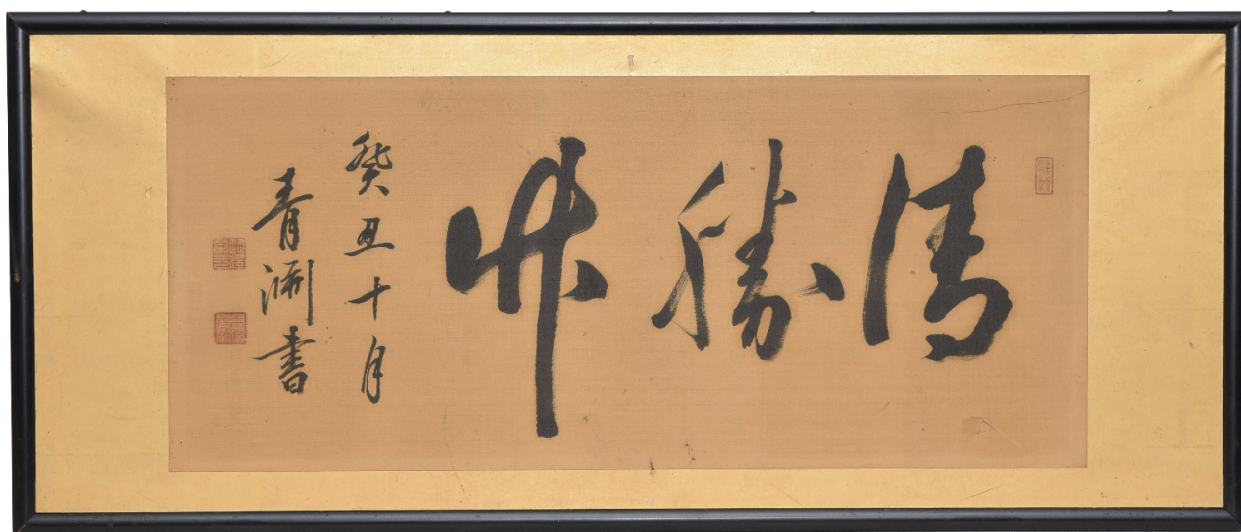 清勝竹
癸丑十月
青淵書